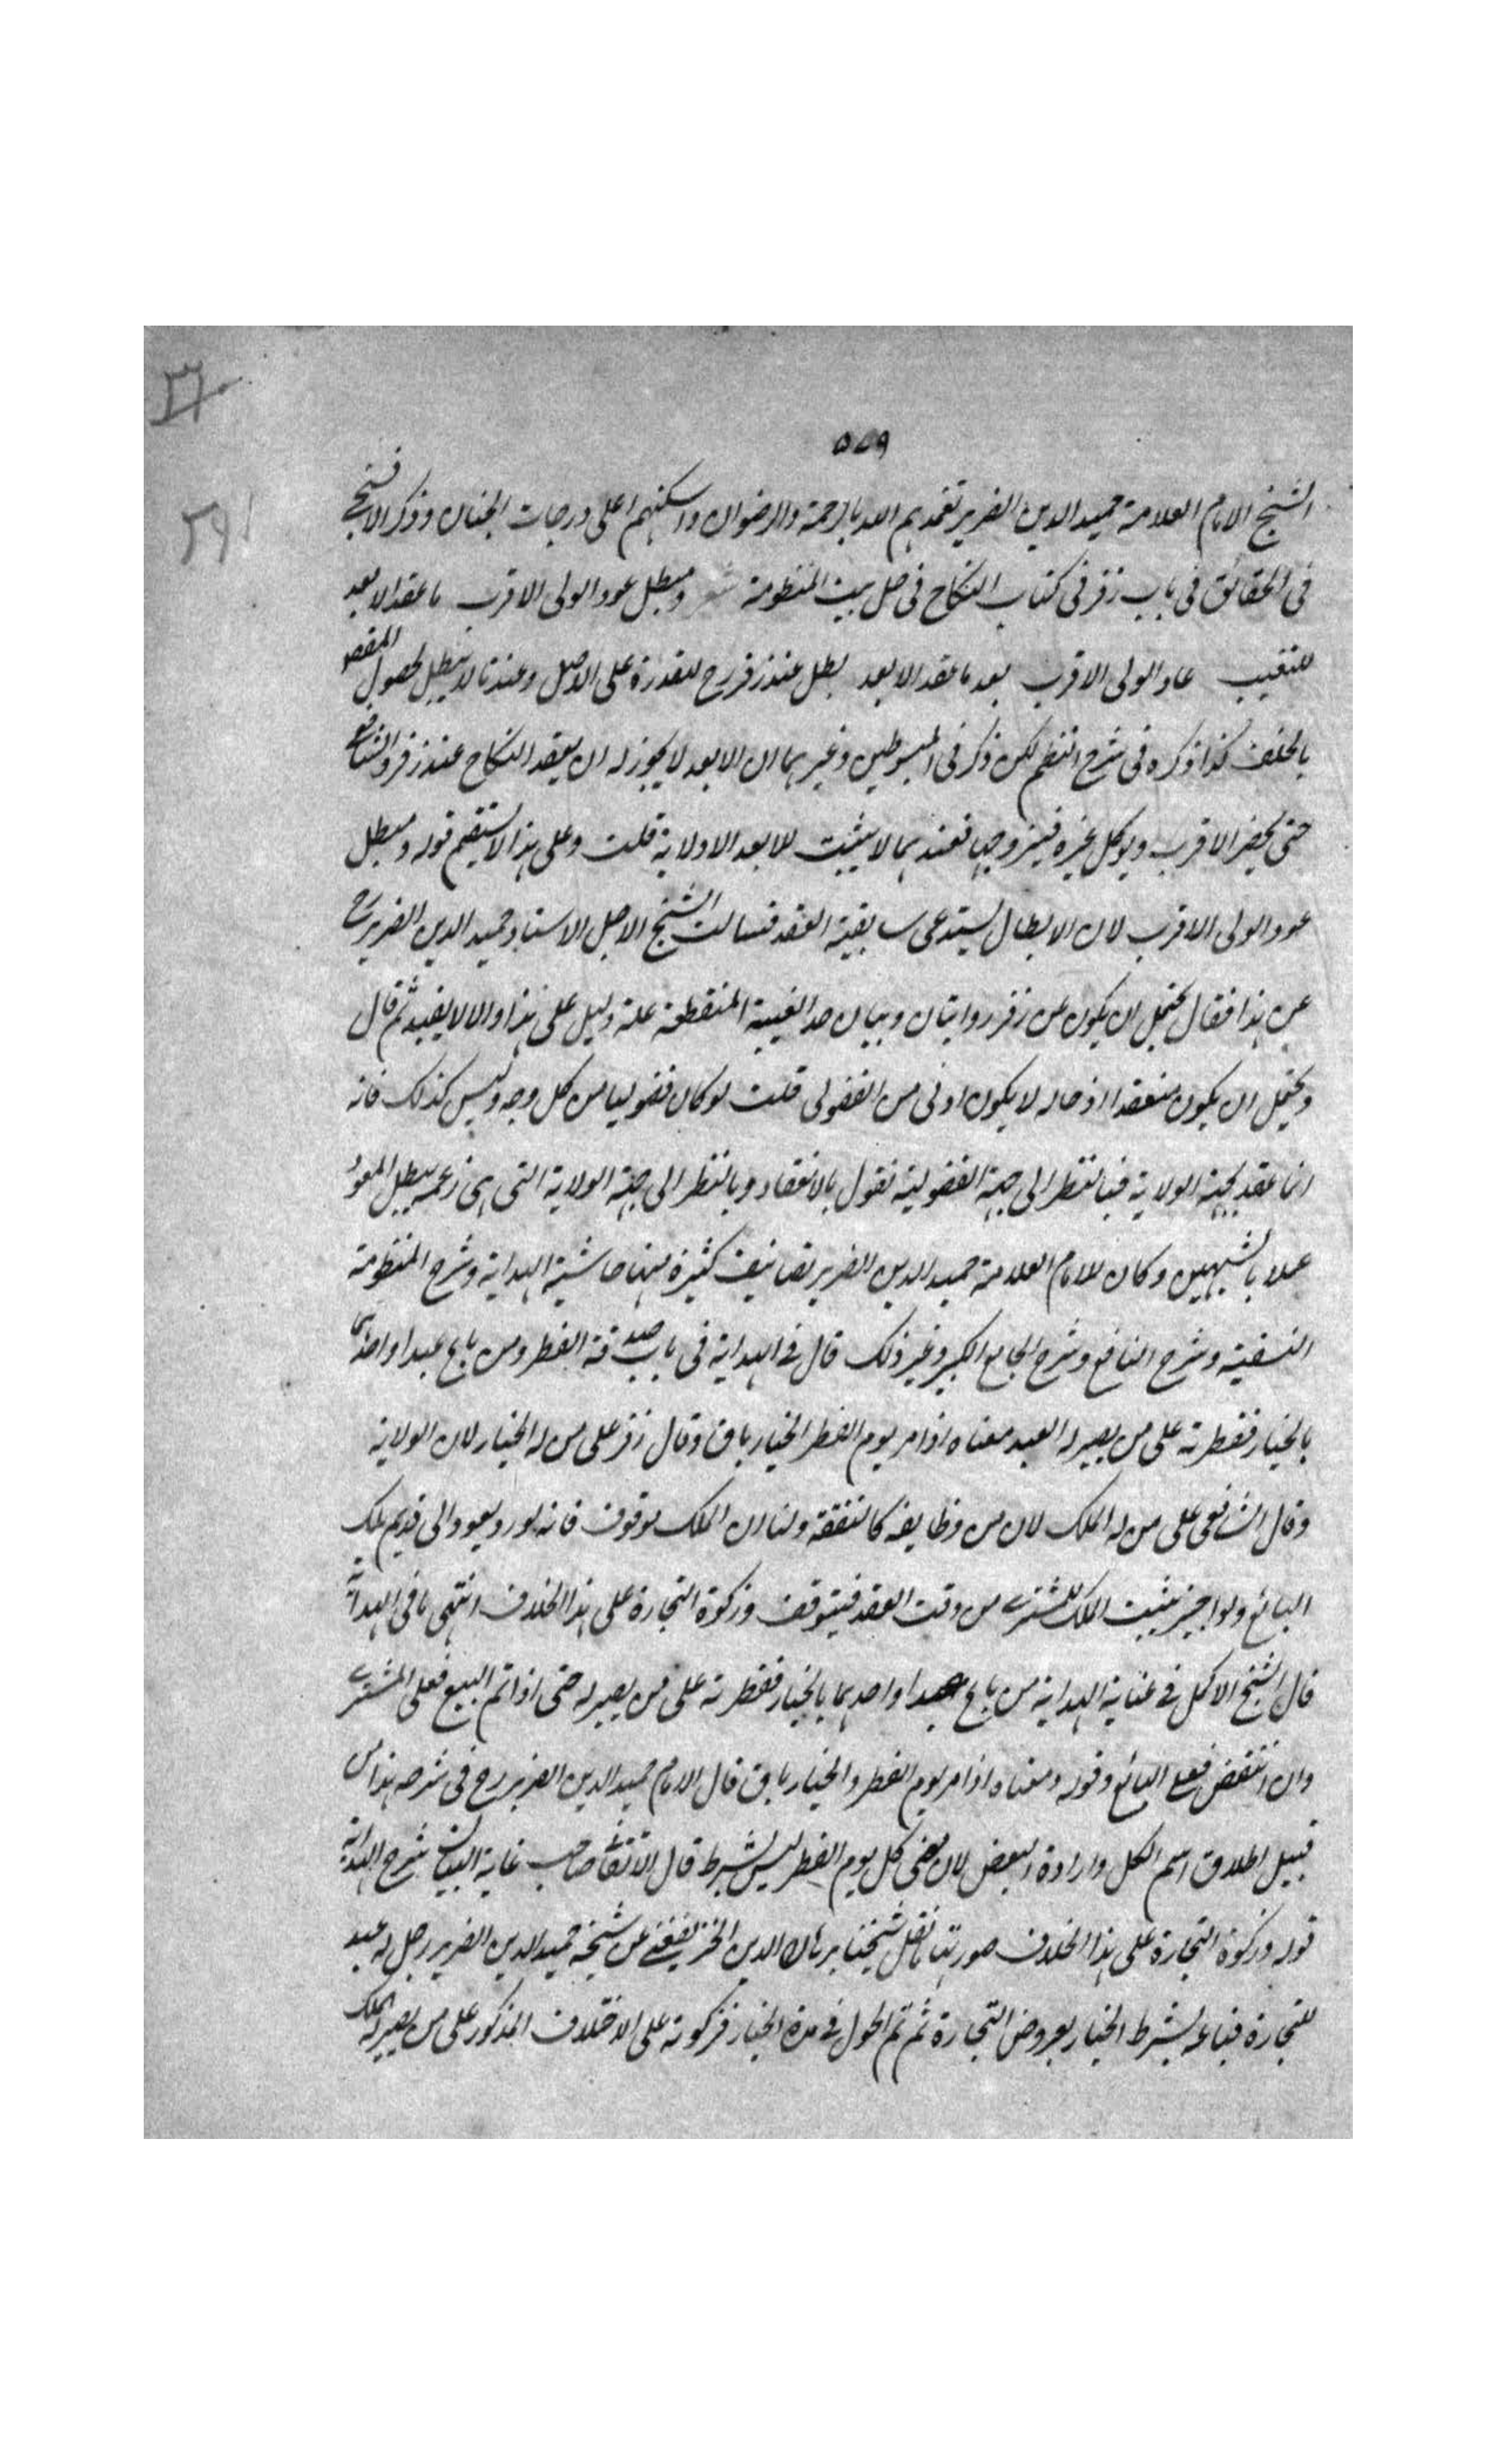 ٥٧٩
الشيخ الامام العلامة حميد الدين الضرير تغمدهم الله بالرحمة والرضوان واسكنهم اعلى درجات الجنان وذكر الافسنجى
فى الحقائق فى باب زفر فى كتاب النكاح فى حل بيت المنظومة شعر ومبطل عود الولى الاقرب ما عقد الابعد
للتغيب عاد الولى الاقرب بعد ما عقد الابعد بطل عند زفر رح للقدرة على الاصل وعندنا لا يبطل لحصول المقصو
بالخلف كذا ذكره فى شرح النظم لكن ذكر فى المبسوطين وغيرهما ان الابعد لا يجوز له ان يعقد النكاح عند زفر والشافعى
حتى يحضر الاقرب ويوكل غيره فيزوجها فعندهما لا يثبت للابعد الاولاية قلت وعلى هذا لا يستقيم قوله ومبطل
عود الولى الاقرب لان الابطال يستدعى سابقية العقد فسالت الشيخ الاجل الاستاد حميد الدين الضرير رح
عن هذا فقال يحتمل ان يكون عن زفر روايتان وبيان حد الغيبة المنقطعة علة دليل على هذا والا لا يفيد ثم قال
ويحتمل ان يكون منعقدا اذ حاله لا يكون ادنى من الفضولى قلت لو كان فضوليا من كل وجه وليس كذلك فانه
انما عقد بجهة الولاية فبالنظر الى جهة الفضولية نقول بالانعقاد وبالنظر الى جهة الولاية التى هى زعمه يبطل العود
عملا بالشبهين وكان للامام العلامة حميد الدين الضرير تصانيف كثيرة منها حاشية الهداية وشرح المنظومة
النسفية وشرح النافع وشرح الجامع الكبير وغير ذلك قال فى الهداية فى باب صدقة الفطر ومن باع عبدا واحدهما
بالخيار ففطرته على من يصير له العبد معناه اذا مر يوم الفطر الخيار باق وقال زفر على من له الخيار لان الولاية
وقال الشافعى على من له الملك لان من وظايفه كالنفقة ولنا ان الملك موقوف فانه لو رد يعود الى قديم ملك
البائع ولو اجيز يثبت الملك للمشترى من وقت العقد فيتوقف وزكوة التجارة على هذا الخلاف انتهى ما فى الهداية
قال الشيخ الاكمل فى عناية الهداية من باع عبدا واحدهما بالخيار ففطرته على من يصير له حتى اذا تم البيع فعلى المشترى
وان انتقض فعلى البائع وقوله ومعناه اذا مر يوم الفطر والخيار باق قال الامام حميد الدين الضرير رح فى شرحه هذا من
قبيل اطلاق اسم الكل وارادة البعض لان مضى كل يوم الفطر ليس بشرط قال الاتقانى صاحب غاية البيان شرح الهداية
قوله وزكوة التجارة على هذا الخلاف صورتها ما نقل شيخنا برهان الدين الخريفغنى عن شيخه حميد الدين الضرير رجل له عبد
للتجارة فباعه بشرط الخيار بعروض التجارة ثم تم الحول فى مدة الخيار فزكوته على الاختلاف المذكور على من يصير له الملك